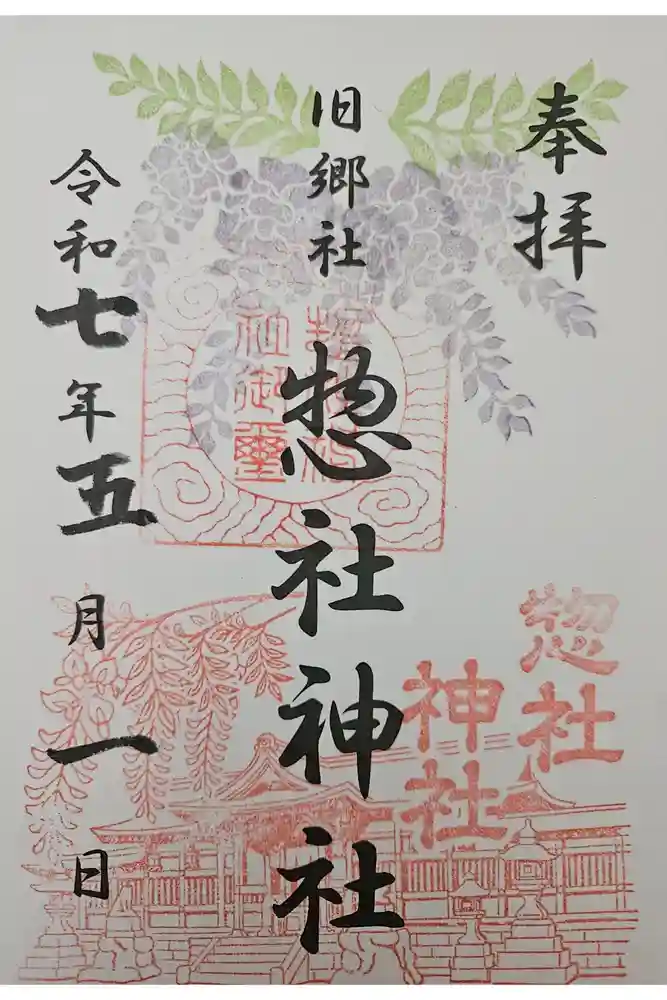 奉拝
旧郷社
惣社神社
令和七年五月一日
惣社
神社
惣社神社
社御璽